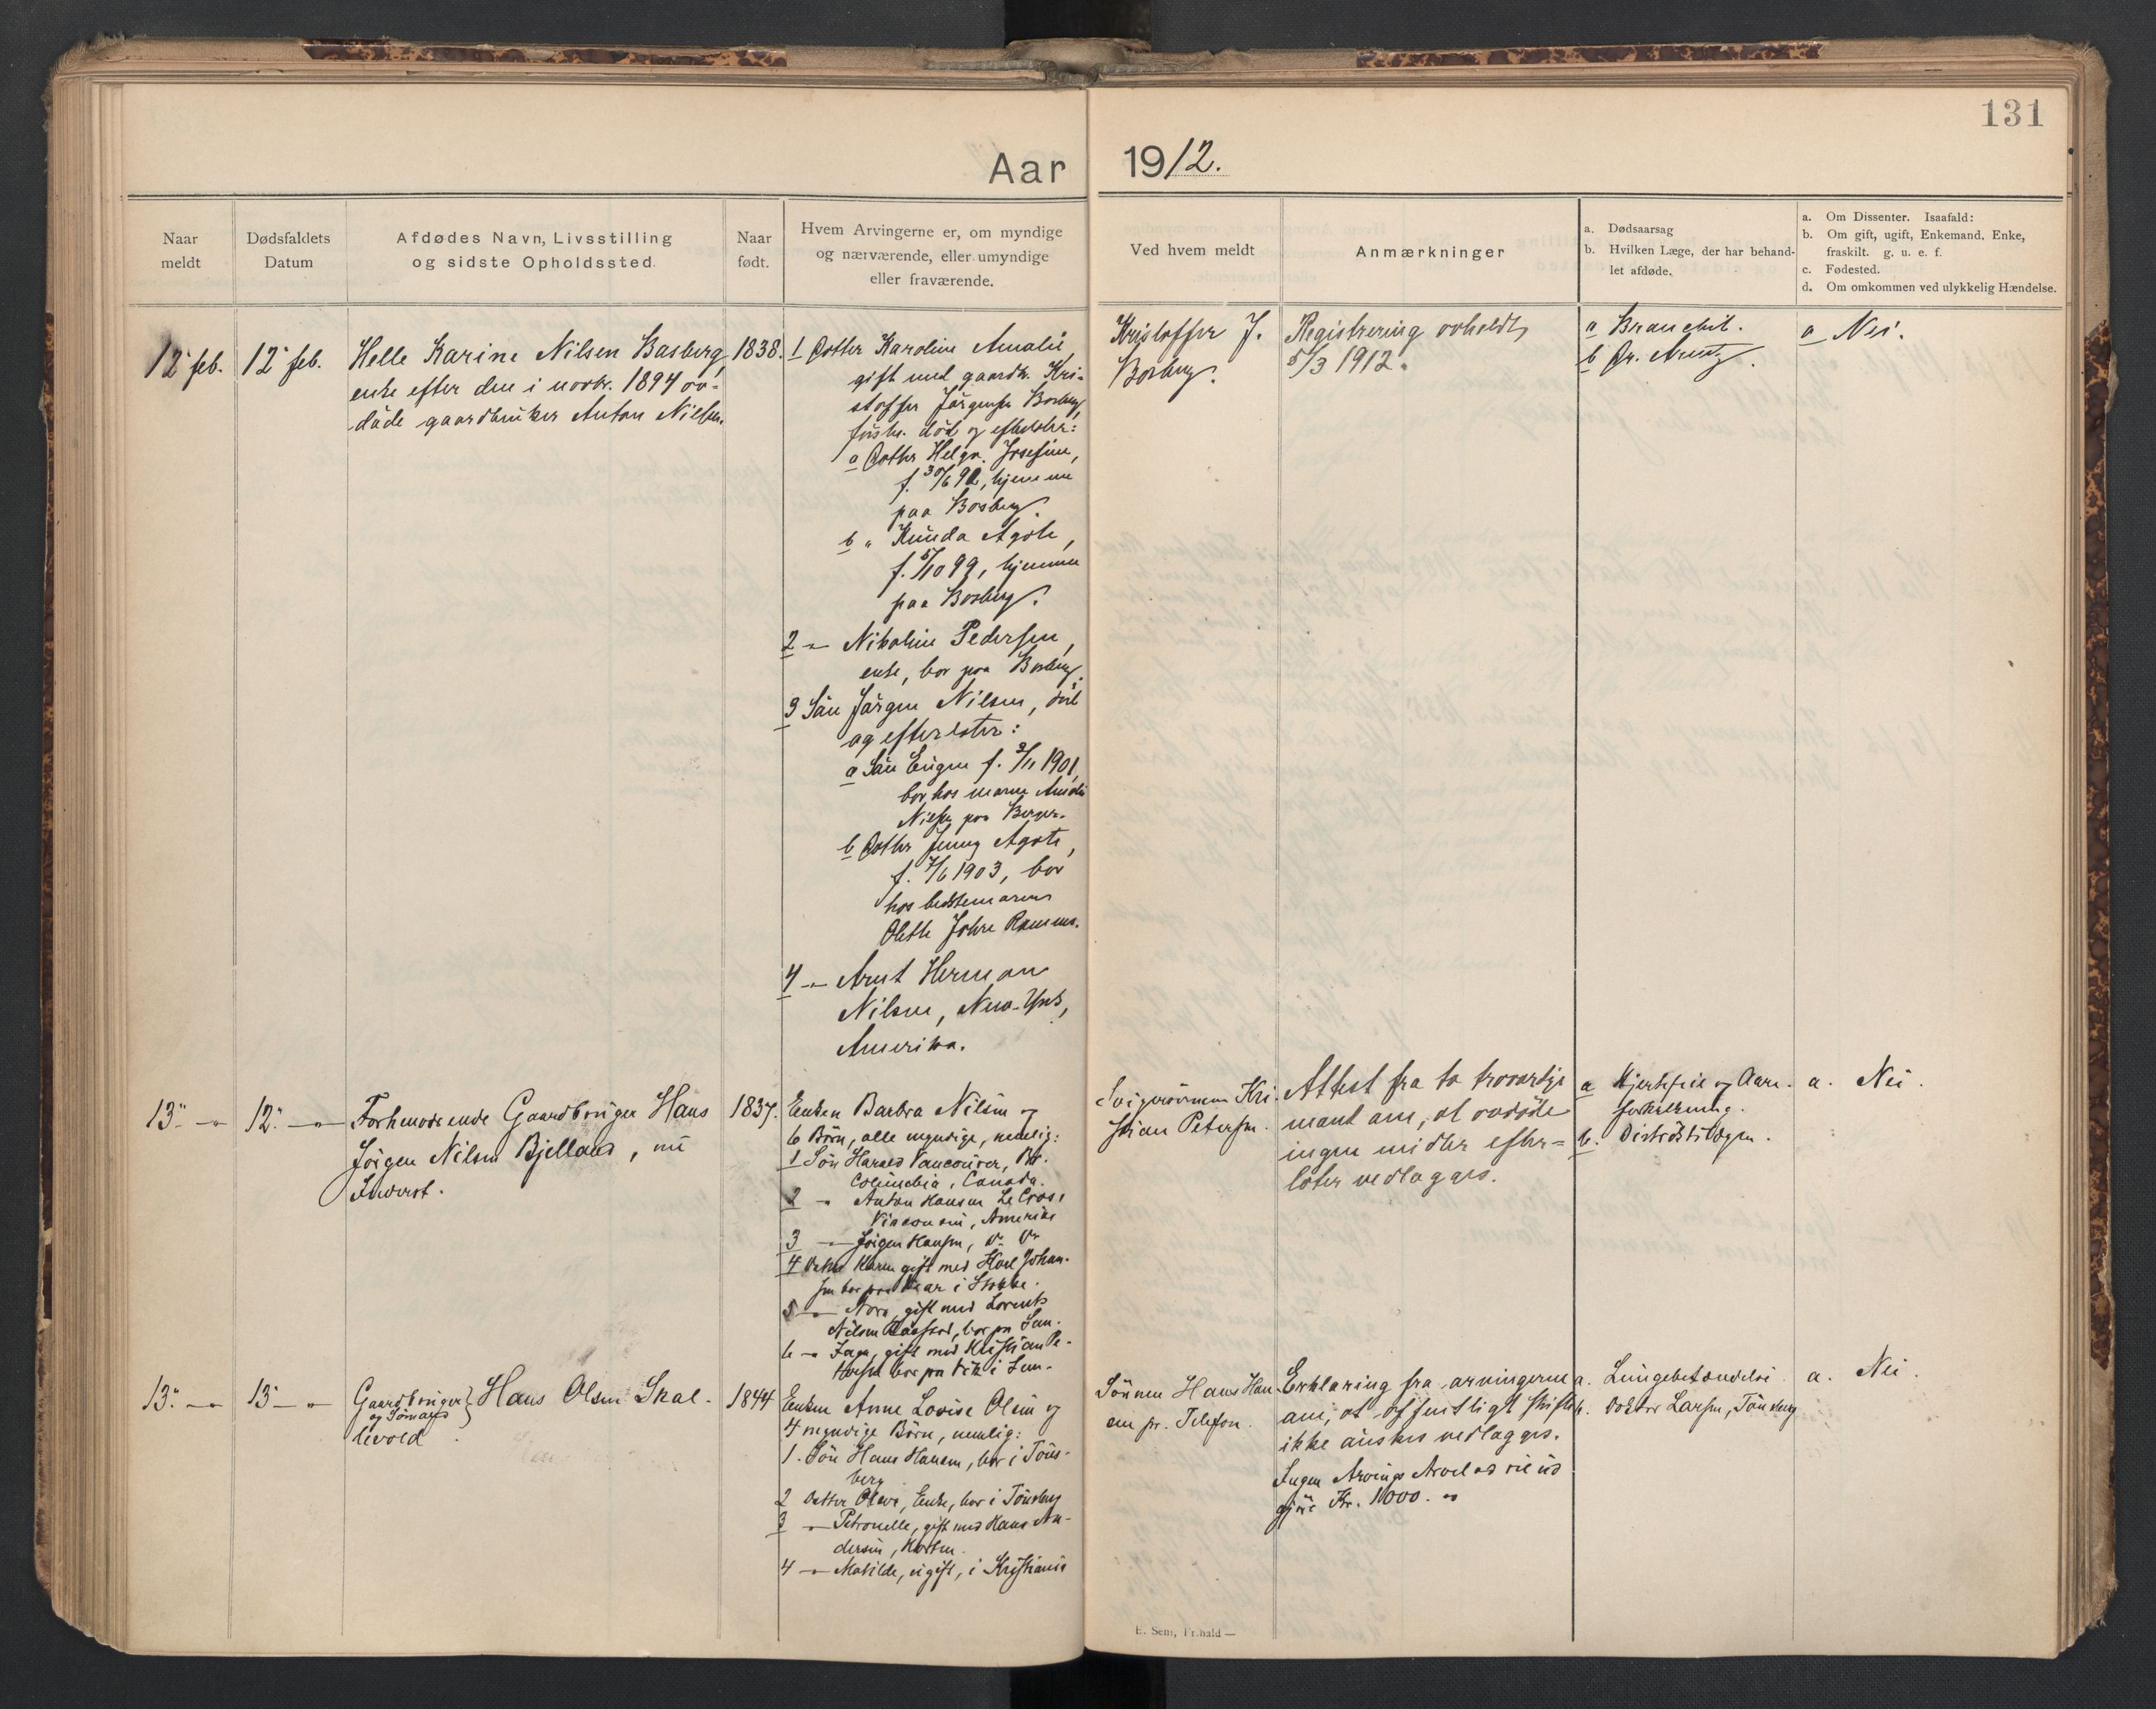 131
Aar 1912.
Naar meldt
Dødsfaldets Datum
Afdødes Navn, Livsstilling og sidste Opholdssted.
Naar født.
Hvem Arvingerne er, om myndige og nærværende, eller umyndige eller fraværende.
Ved hvem meldt
Anmærkninger
a. Dødsaarsag
b. Hvilken Læge, der har behandlet afdøde.
a. Om Dissenter. Isaafald:
b. Om gift, ugift, Enkemand, Enke, fraskilt. g. u. e. f.
c. Fødested.
d. Om omkommen ved ulykkelig Hændelse.
12" feb.
12" feb.
Helle Karine Nilsen Basberg,
enke efter den i novbr. 1894 av-
døde gaardbruker Anton Nilsen.
1838.
1 Datter Karoline Amalie,
gift med gaardbr. Kri-
stoffer Jørgensen Basberg,
død og efterlater:
a Datter Helga Josefine,
hjemme
paa Basberg.
b " Kunda Agate,
f. 5/10 99, hjemme
paa Basberg.
2 -"- Nikoline Pedersen,
enke, bor paa Basberg.
3 Søn Jørgen Nilsen, død
og efterlater:
a Søn Eugen f. 3/11 1901,
bor hos moren
Nilsen paa
b Datter Jenny Agate,
f. 7/6 1903, bor
hos bedstemoren
Olette
4 -"- Arnt Herman
Nilsen, New-York,
Amerika.
Kristoffer J.
Basberg.
Registrering avholdt
5/3 1912.
a Bronchit.
b Dr. Arentz.
a Nei.
13" -"-
12" -"-
Forhenværende Gaardbruger Hans
Jørgen Nilsen Bjelland, nu
Inderst.
1837.
Enken Barbra Nilsen og
6 Børn, alle myndige, nemlig:
1 Søn Harald Vancouver, Br.
Columbia, Canada.
2 -"- Anton Hansen La Cross
Visconsin, Amerika
3 -"- Jørgen Hansen, Do Do
4 Datter Karen gift med Karl Johan-
sen bor paa i Stokke.
5 -"- Nora, gift med Lorents
Nilsen bor paa Sem.
6 -"- Inga, gift med Kristian Pe-
tersen bor paa i Sem.
Svigersønnen Kri-
stian Petersen.
Attest fra to troværdige
mænd om, at avdøde
ingen midler efter-
later vedlægges.
a Hjertefeil og Aare-
forkalkning.
b. Distriktslægen.
a. Nei.
13" -"-
13 -"-
Gaardbruger og
levold
Hans Olsen Skal-
1844
Enken Anne Lovise Olsen og
4 myndige Børn, nemlig:
1. Søn Hans Hansen, bor i Tøns-
berg
2 Datter Oleva, Enke, bor i Tønsberg
3 -"- Petronelle, gift med Hans An-
dersen, Horten.
4 -"- Matilde, ugift, i Kristiania
Sønnen Hans Han-
sen pr. Telefon.
Erklæring fra arvingerne
om, at offentligt skifte
ikke ønskes vedlægges.
Ingen Arvings Arvelod vil ud
gjøre Kr. 1000.-
a. Lungebetændelse.
b. Doktor Larsen, Tønsberg
a. Nei.
E. Sem, Fr.hald —